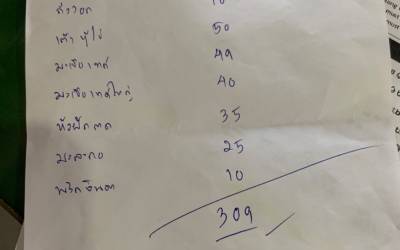 ถั่วงอก 10
เต้าหู้ไข่ 50
มะเขือเทศ 49
มะเขือเทศใหญ่ 40
หัวผักกาด 35
มะละกอ 25
พริกจินดา 10
309